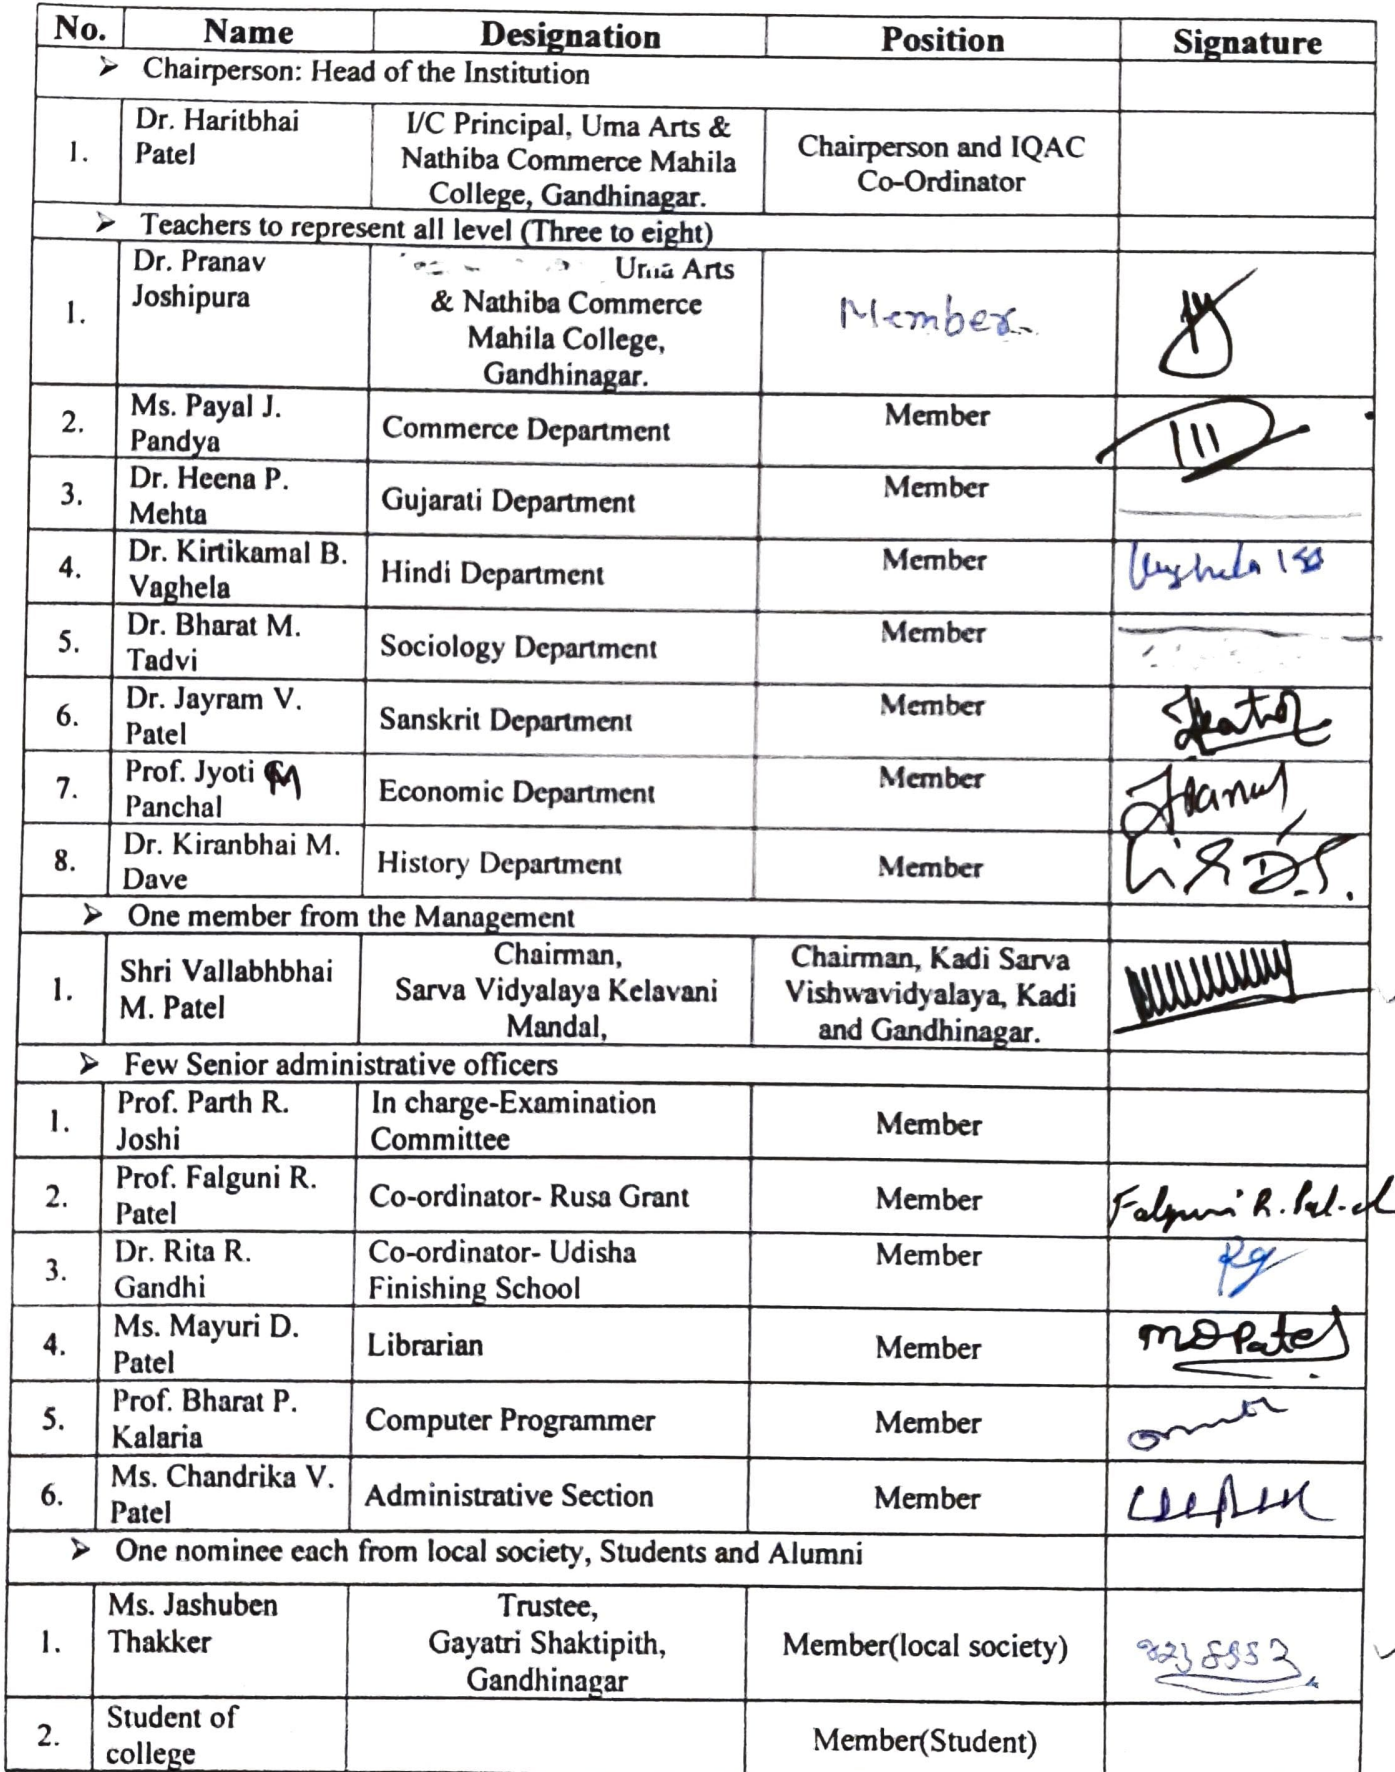 No. Name Designation Position Signature
➤ Chairperson: Head of the Institution
1. Dr. Haritbhai Patel I/C Principal, Uma Arts & Nathiba Commerce Mahila College, Gandhinagar. Chairperson and IQAC Co-Ordinator
➤ Teachers to represent all level (Three to eight)
1. Dr. Pranav Joshipura Uma Arts & Nathiba Commerce Mahila College, Gandhinagar. Member
2. Ms. Payal J. Pandya Commerce Department Member
3. Dr. Heena P. Mehta Gujarati Department Member
4. Dr. Kirtikamal B. Vaghela Hindi Department Member
5. Dr. Bharat M. Tadvi Sociology Department Member
6. Dr. Jayram V. Patel Sanskrit Department Member
7. Prof. Jyoti M Panchal Economic Department Member
8. Dr. Kiranbhai M. Dave History Department Member
➤ One member from the Management
1. Shri Vallabhbhai M. Patel Chairman, Sarva Vidyalaya Kelavani Mandal, Chairman, Kadi Sarva Vishwavidyalaya, Kadi and Gandhinagar.
➤ Few Senior administrative officers
1. Prof. Parth R. Joshi In charge-Examination Committee Member
2. Prof. Falguni R. Patel Co-ordinator- Rusa Grant Member Falguni R. Patel
3. Dr. Rita R. Gandhi Co-ordinator- Udisha Finishing School Member
4. Ms. Mayuri D. Patel Librarian Member MDPatel
5. Prof. Bharat P. Kalaria Computer Programmer Member
6. Ms. Chandrika V. Patel Administrative Section Member
➤ One nominee each from local society, Students and Alumni
1. Ms. Jashuben Thakker Trustee, Gayatri Shaktipith, Gandhinagar Member(local society)
2. Student of college Member(Student)